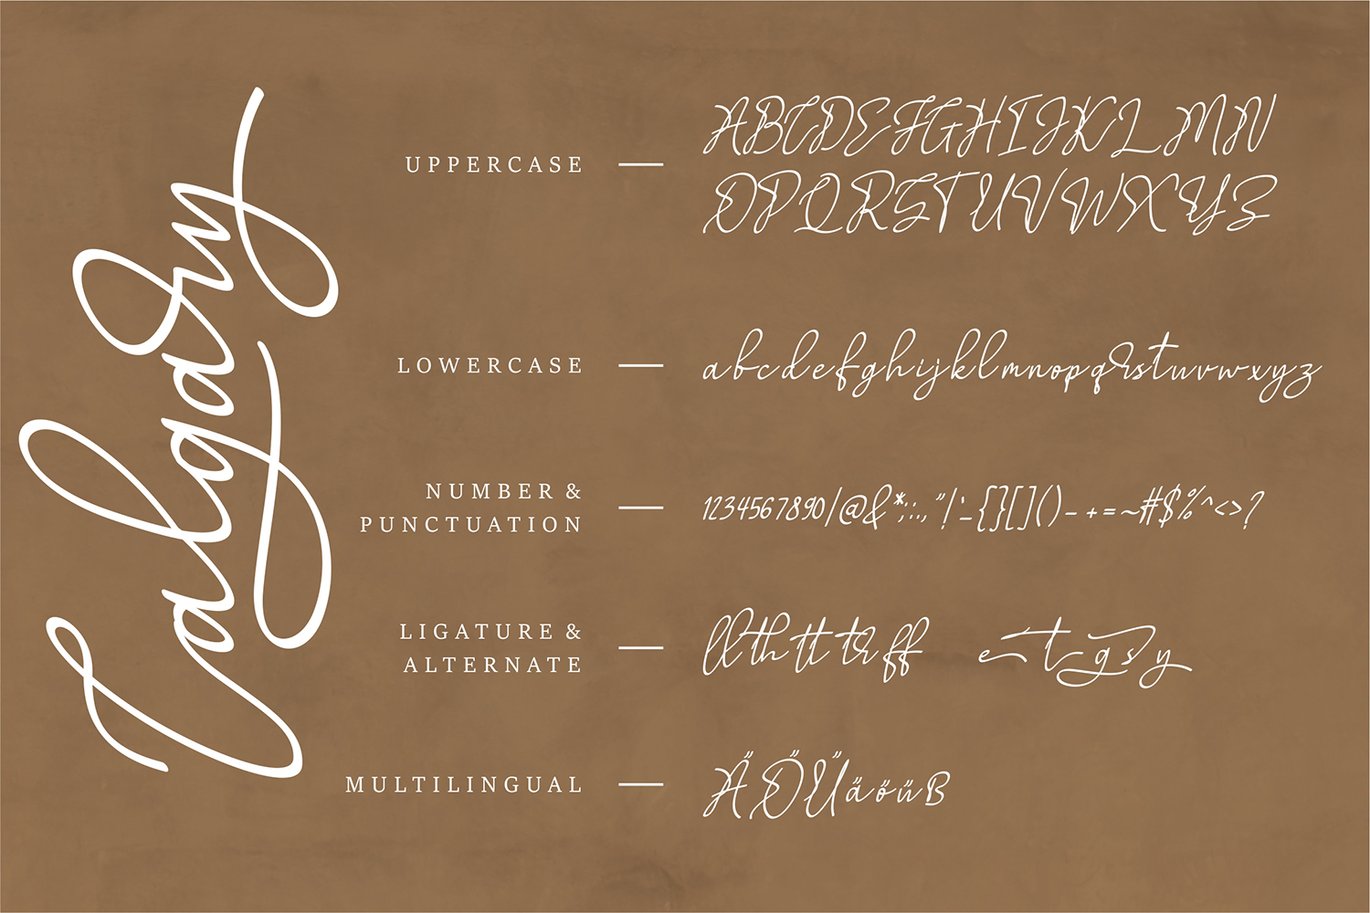 Calgary
UPPERCASE — ABCDEFGHIJKLMN
OPQRSTUVWXYZ
LOWERCASE — abcdefghijklmnopqrstuvwxyz
NUMBER &
PUNCTUATION — 1234567890/@&*;:.,"!'_{}[]()-+=~#$%^<>?
LIGATURE &
ALTERNATE — ll th tt tr ff e t g s y
MULTILINGUAL — ÄÖÜäöüß